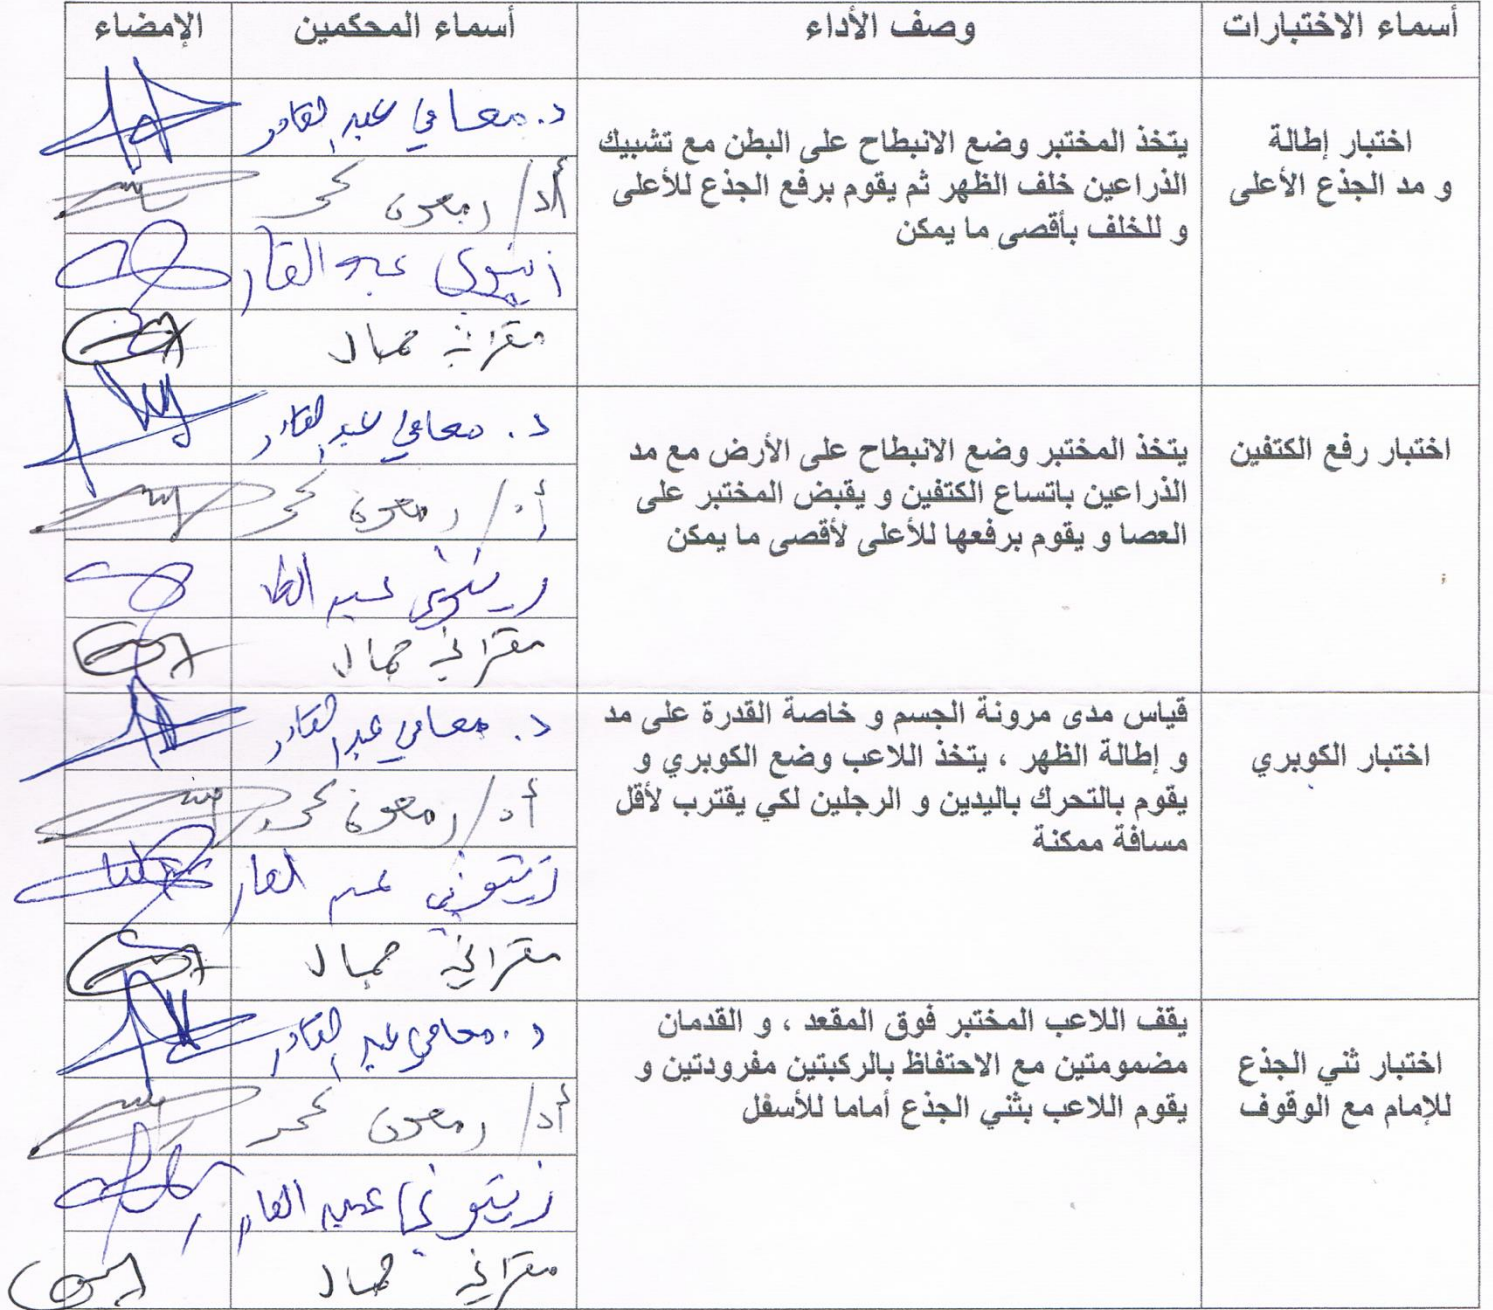 أسماء الاختبارات
وصف الأداء
أسماء المحكمين
الإمضاء
اختبار إطالة
و مد الجذع الأعلى
يتخذ المختبر وضع الانبطاح على البطن مع تشبيك
الذراعين خلف الظهر ثم يقوم برفع الجذع للأعلى
و للخلف بأقصى ما يمكن
د. معافي عبد القادر
أ.د/ رمعون محمد
زيتوني عبد القادر
مقراني جمال
اختبار رفع الكتفين
يتخذ المختبر وضع الانبطاح على الأرض مع مد
الذراعين باتساع الكتفين و يقبض المختبر على
العصا و يقوم برفعها للأعلى لأقصى ما يمكن
د. معافي عبد القادر
أ.د/ رمعون محمد
زيتوني عبد
مقراني جمال
اختبار الكوبري
قياس مدى مرونة الجسم و خاصة القدرة على مد
و إطالة الظهر ، يتخذ اللاعب وضع الكوبري و
يقوم بالتحرك باليدين و الرجلين لكي يقترب لأقل
مسافة ممكنة
د. معافي عبد القادر
أ.د/ رمعون محمد
زيتوني عبد القادر
مقراني جمال
اختبار ثني الجذع
للإمام مع الوقوف
يقف اللاعب المختبر فوق المقعد ، و القدمان
مضمومتين مع الاحتفاظ بالركبتين مفرودتين و
يقوم اللاعب بثني الجذع أماما للأسفل
د. معافي عبد القادر
أ.د/ رمعون محمد
زيتوني عبد القادر
مقراني جمال